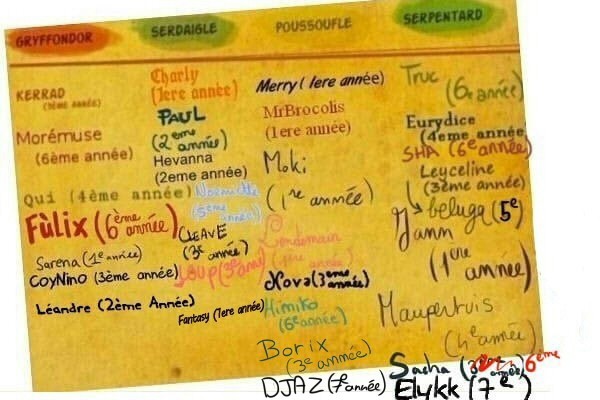 GRYFFONDOR
SERDAIGLE
POUSSOUFLE
SERPENTARD
KERRAD
(3ème année)
Morémuse
(6ème année)
Qui (4ème année)
Fùlix (6ème année)
Sarena (1e année)
CoyNino (3ème année)
Léandre (2ème Année)
Charly
(1ere année)
PAUL
(2eme année)
Hevanna
(2eme année)
(5eme année)
CLEAVE
(3e année)
LOUP (3e année)
Fantasy (1ere année)
Merry (1ere année)
MrBrocolis
(1ere année)
Moki
(1re année)
Lendemain
(1ère année)
Nova (3eme année)
Himiko
(6e année)
Borix
(3e année)
DJAZ (7e année)
Truc
(6e année)
Eurydice
(4eme année)
SHA (6e année)
Leyceline
(3ème année)
↳ beluga (5e)
Yann
(1ere année)
Maupertuis
(4e année)
Sacha 6ème
Elykk (7e)